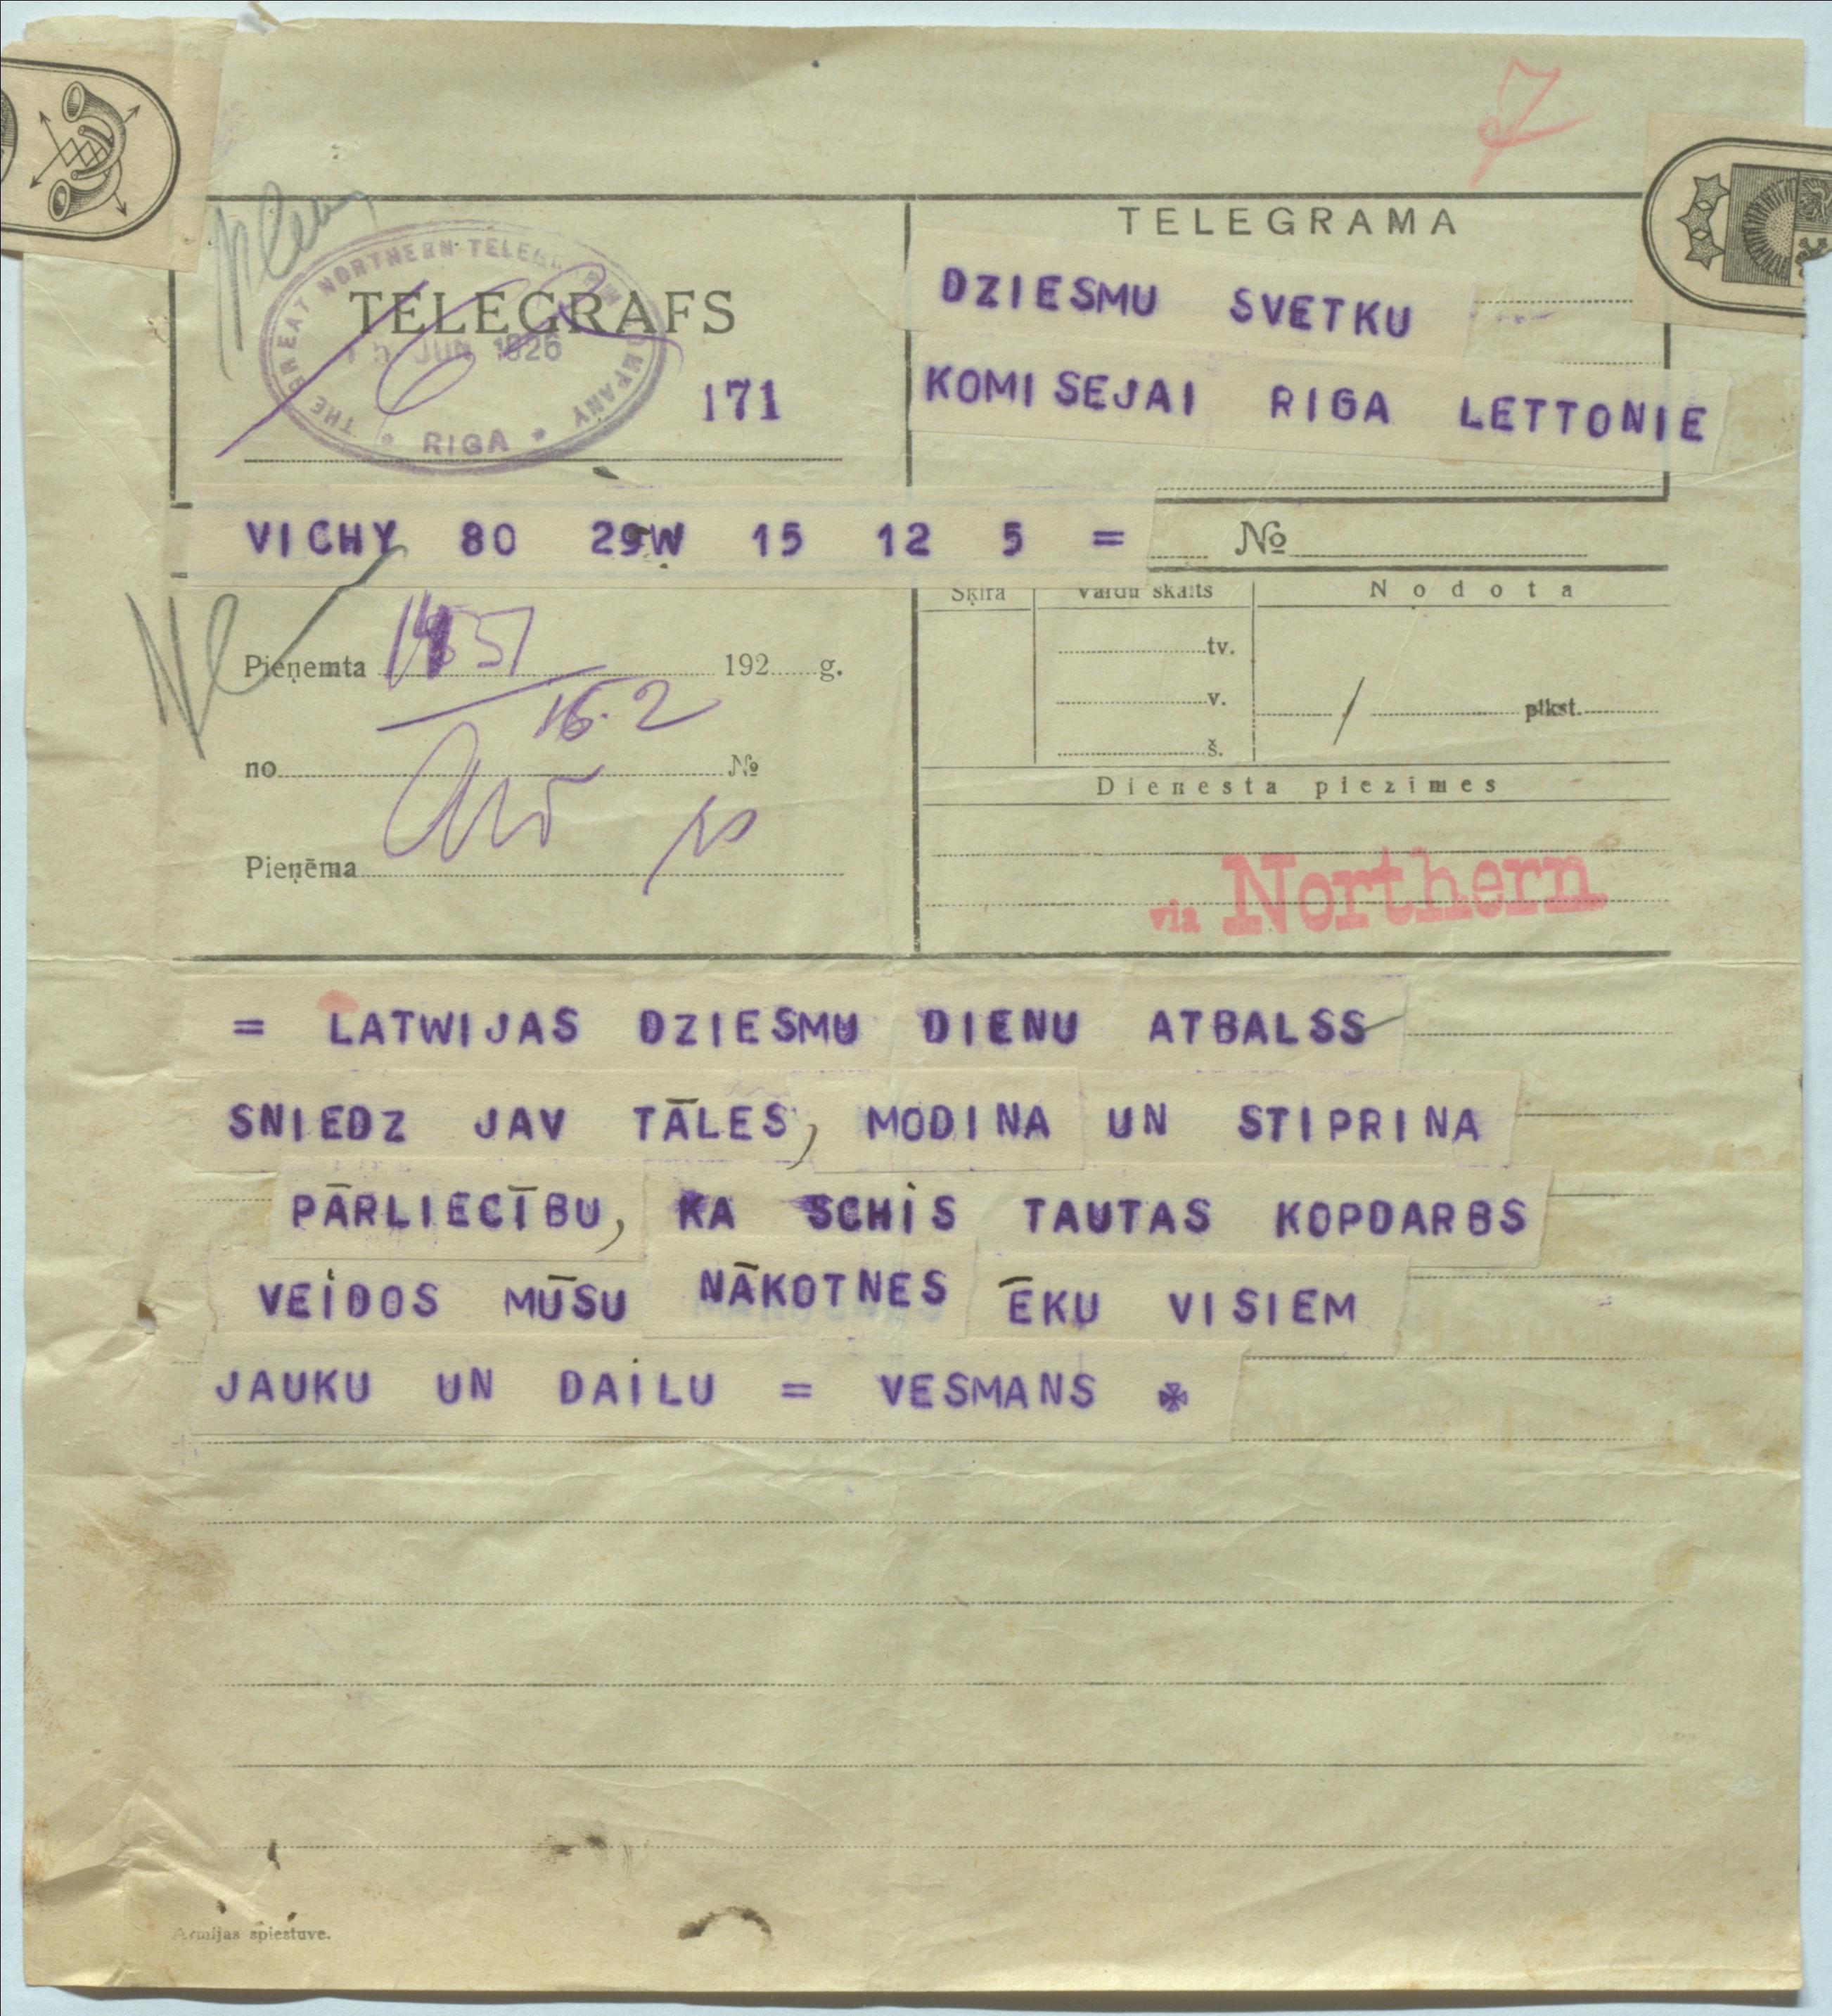 7
TELEGRAMA
THE GREAT NORTHERN TELEGRAPH COMPANY
TELEGRAFS
JUN 1926
171
* RIGA *
DZIESMU SVETKU
KOMISEJAI RIGA LETTONIE
VICHY 80 29W 15 12 5 =
№
Šķira Vārdu skaits Nodota
Pieņemta 1451 192 g.
tv.
16.2
v.
/ plkst.
no № š.
Dienesta piezimes
Pieņēma
via Northern
= LATWIJAS DZIESMU DIENU ATBALSS
SNIEDZ JAV TĀLES, MODINA UN STIPRINA
PĀRLIECĪBU, KA SCHIS TAUTAS KOPDARBS
VEIDOS MŪSU NĀKOTNES ĒKU VISIEM
JAUKU UN DAILU = VESMANS *
Armijas spiestuve.